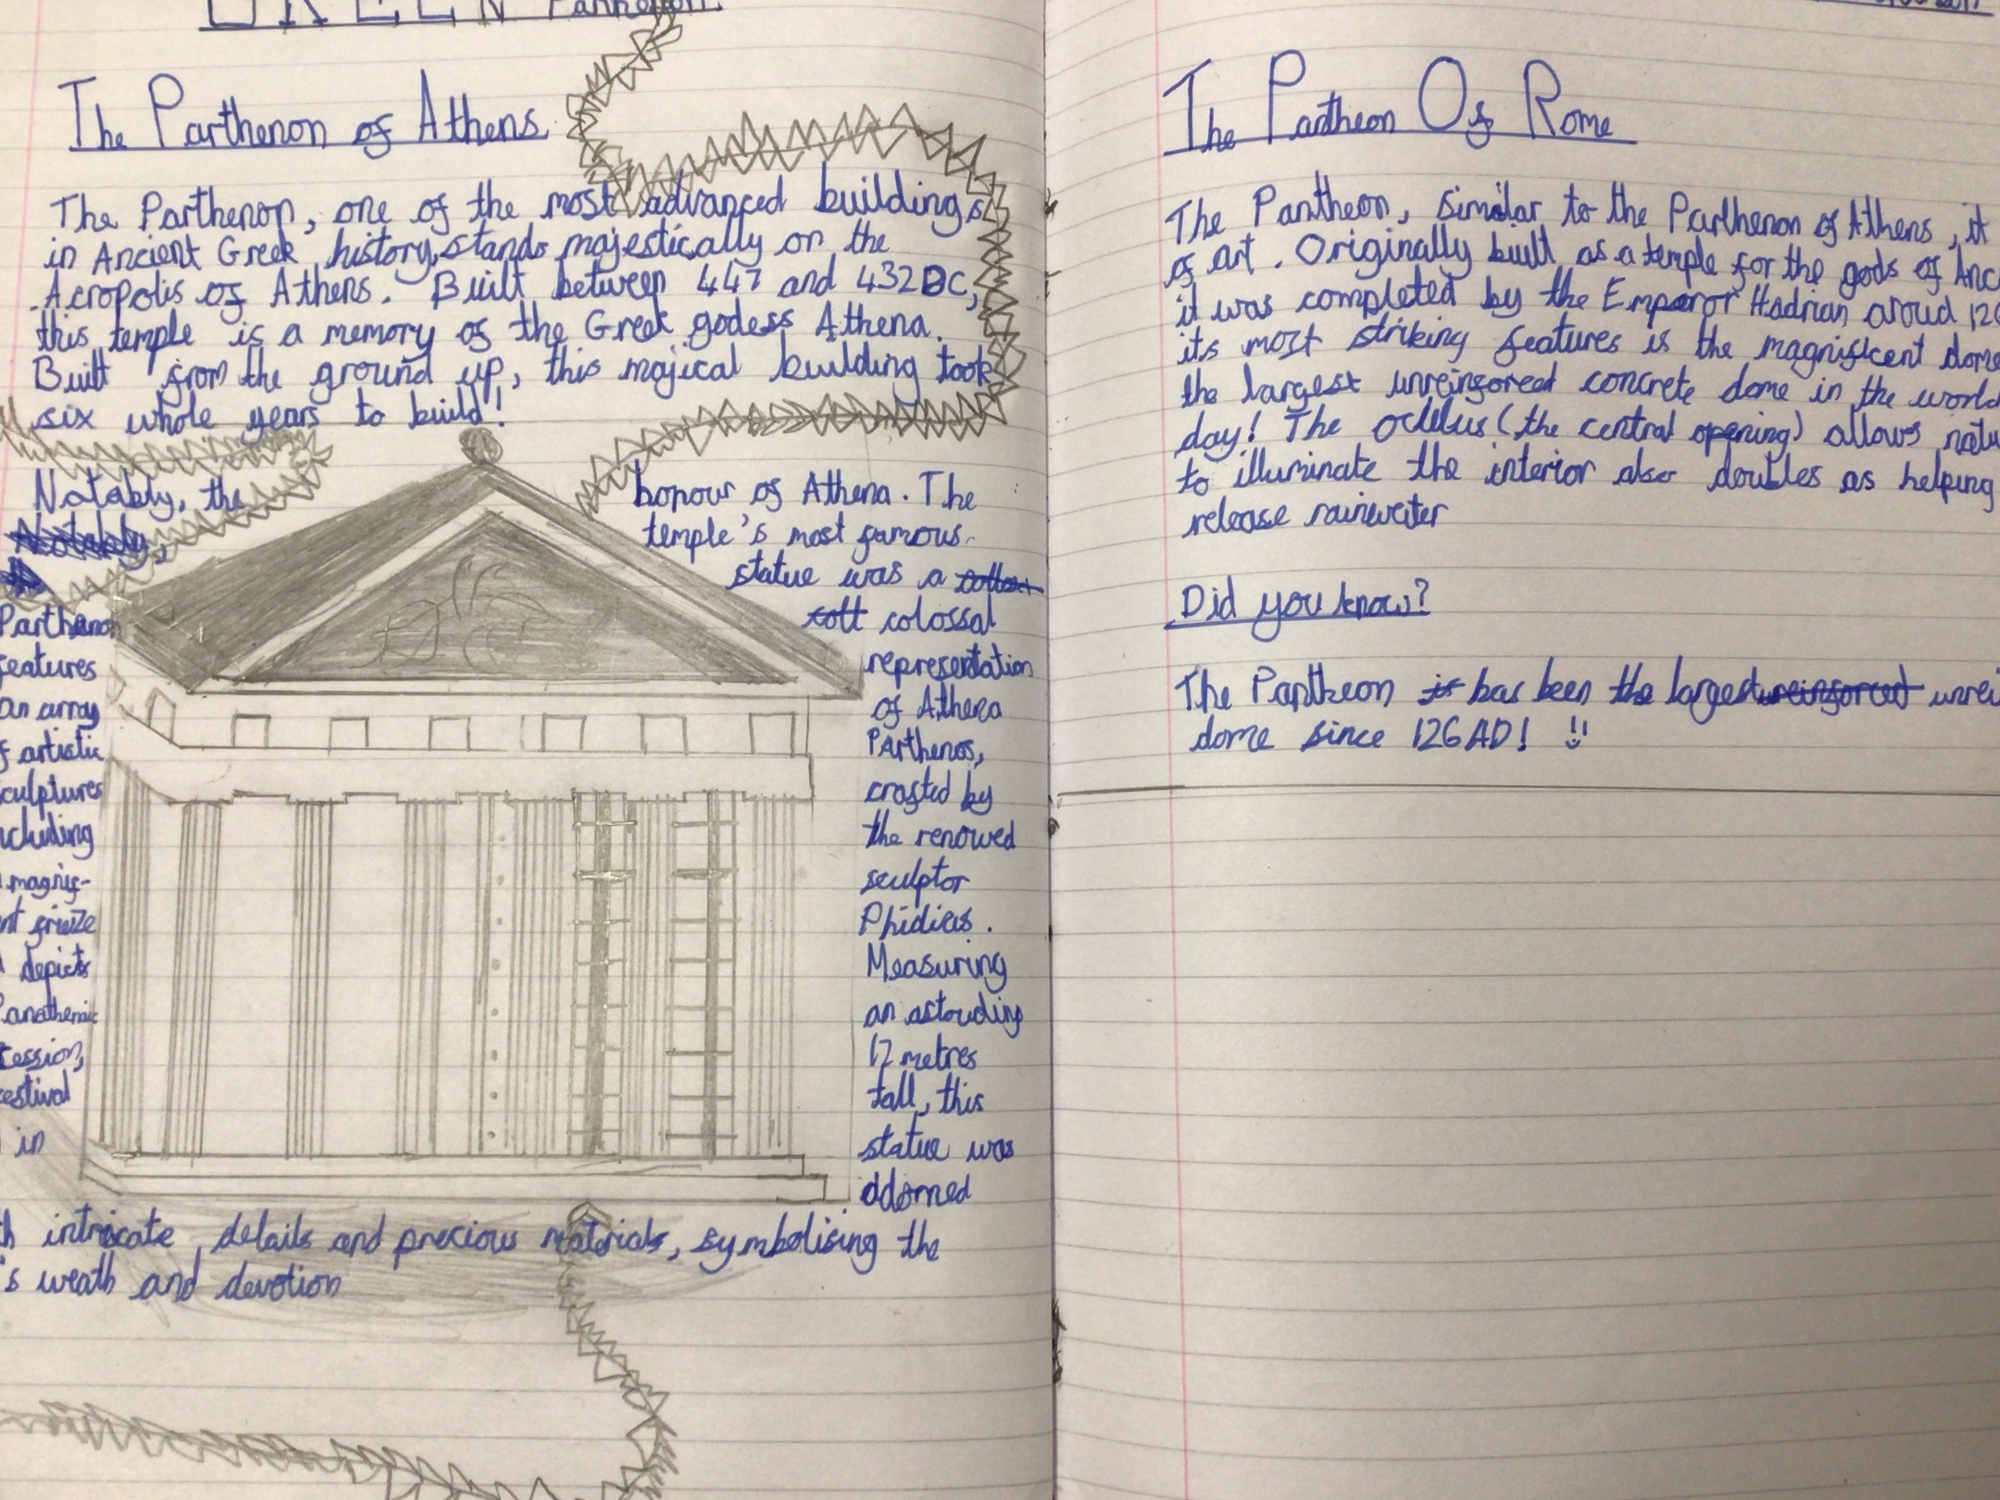 GREEK Parthenon.
The Parthenon of Athens
The Parthenon, one of the most advanced buildings
in Ancient Greek history, stands majestically on the
Acropolis of Athens. Built between 447 and 432BC,
this temple is a memory of the Greek godess Athena.
Built from the ground up, this majical building took
six whole years to build!
Notably, the
Notably,
Parthenon
features
an array
f artistic
culptures
ncluding
magnif-
nt frieze
depicts
Panathenaic
cession,
estival
in
honour of Athena. The
temple's most famous
statue was a
cott colossal
representation
of Athena
PArthenos,
crafted by
the renowed
sculptor
Phidias.
Measuring
an astouding
12 metres
tall, this
statue was
adorned
h intricate details and precious materials, symbolising the
's weath and devotion
The Pantheon Of Rome
The Pantheon, similar to the Parthenon of Athens, it
of art. Originally built as a temple for the gods of Anc
it was completed by the Emperor Hadrian aroud 12
its most striking features is the magnificent dome
the largest unreinforced concrete dome in the world
day! The oculus (the central opening) allows natu
to illuminate the interior also doubles as helping
release rainwater
Did you know?
The Pantheon is has been the largest reinforced unrei
dome since 126AD! !!